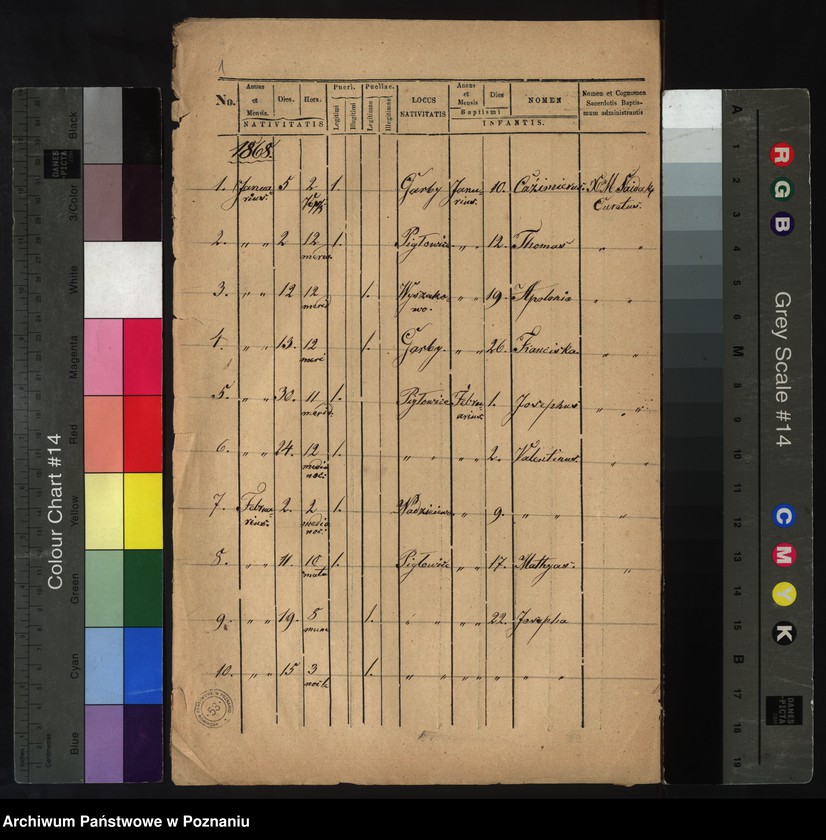 1
No.
Annus et Mensis
Dies.
Hora.
Pueri.
Puellae.
Legitimi
Illegitimi
Legitimae
Illegitimae
LOCUS NATIVITATIS
Annus et Mensis
Dies
Baptismi
NOMEN
Nomen et Cognomen Sacerdotis Baptismum administrantis
NATIVITATIS
INFANTIS.
1868.
1. Janua 5 2 1. Garby Janu 10. Cazimierus. X. M.
rius. rius. Curatus.
2. " " 2 12 1. " " 12. Thomas " "
3. " " 12 12 1. Wyszako " " 19. Apolonia " "
merid wo.
4. " " 13. 12 1. Garby. " " 26. Franciska " "
meri
5. " " 30. 11 1. Piglowice Febru 1. Josephus " "
merid. arius.
6. " " 24. 12 1. " " " " 2. Valentinus. " "
media
noc.
7. Febru 2. 2 1. " " 9. " " "
rius. media
noc.
8. " " 11. 10 1. Piglowice " " 17. Mathyas. "
9. " " 19. 5 1. " " " " 22. Josepha
10. " " 15 3 1. " " " " " " "
53
Colour Chart #14
Black
3/Color
White
Magenta
Red
Yellow
Green
Cyan
Blue
Centimetres
DANES PICTA
Grey Scale #14
R
G
B
C
M
Y
K
A
1
2
3
4
5
6
M
8
9
10
11
12
13
14
15
B
17
18
19
DANES PICTA
Archiwum Państwowe w Poznaniu